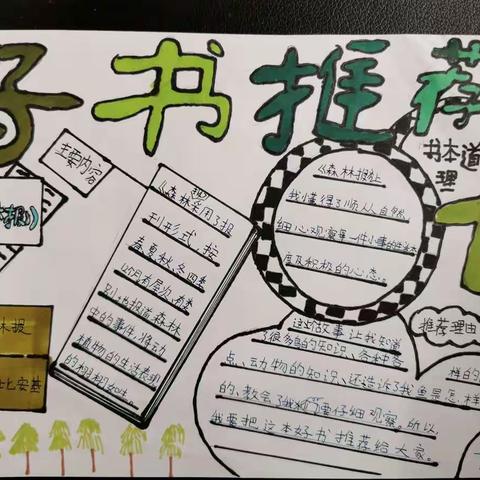 好书推荐
书本道
理
主要内容
《森林报》采用了报
刊形式，按
春夏秋冬四季
12月有层次、分类
别地报道森林
中的事件，将动
植物的生活表现
的栩栩如生。
《森林报》让
我懂得了
细心观察
度及积极的心态。
推荐理由
这些故事让我知道
了很多鱼的知识、各种各
点、动物的知识、还告诉了我鱼是怎样
样的
的、教会了我们要仔细观察。所以，
我要把这本好书推荐给大家。
林报
比安基